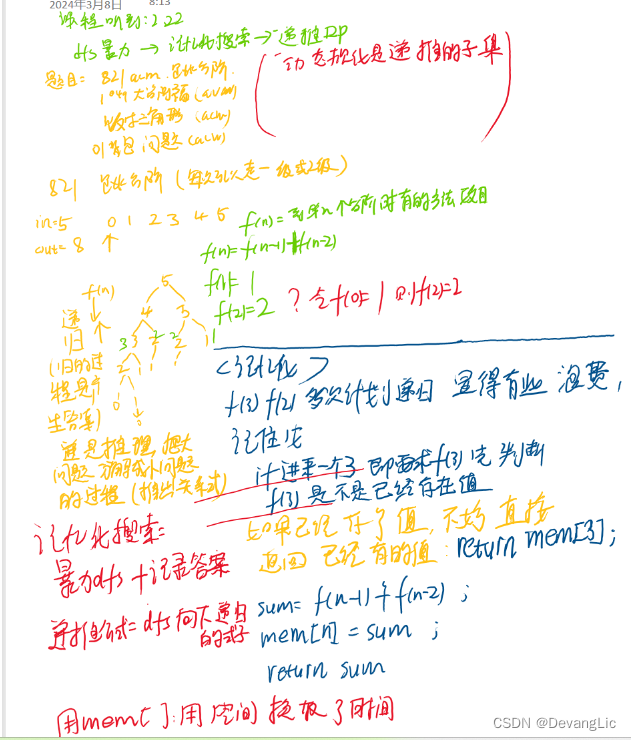 2024年3月8日 8:13
课程听到: 2.22
dfs暴力→记忆化搜索→递推DP
(动态规化是递推的子集
题目: 821 acm 爬台阶
1049 大盗阿福 (acm)
数字三角形 (acw)
01背包问题 (acw)
821 爬台阶 (每次可以走一级或2级)
in=5 0 1 2 3 4 5
out=8 ↑
f(n)=到第n个台阶时有的方法数目
f(n)=f(n-1)+f(n-2)
f(1)=1
f(2)=2 ? 令f(0)=1 则f(2)=2
f(n) 5
递 4 3
归 3 3 2 2 1
(归的过
程是产
生答案)
递是推理,把大
问题分解成小问题
的过程(推出关系式)
<记忆化>
f(3) f(2) 多次计划递归 显得有些浪费,
记住它
if 进来一个3 即需求f(3) 先判断
f(3) 是不是已经存在值
如果已经存了值,不妨直接
返回已经有的值: return mem[3];
记忆化搜索=
暴力dfs+记录答案
递推公式=dfs向下递归
的式子
sum= f(n-1)+f(n-2) ;
mem[n] = sum ;
return sum
用mem[ ]:用空间换取了时间
CSDN @DevangLic